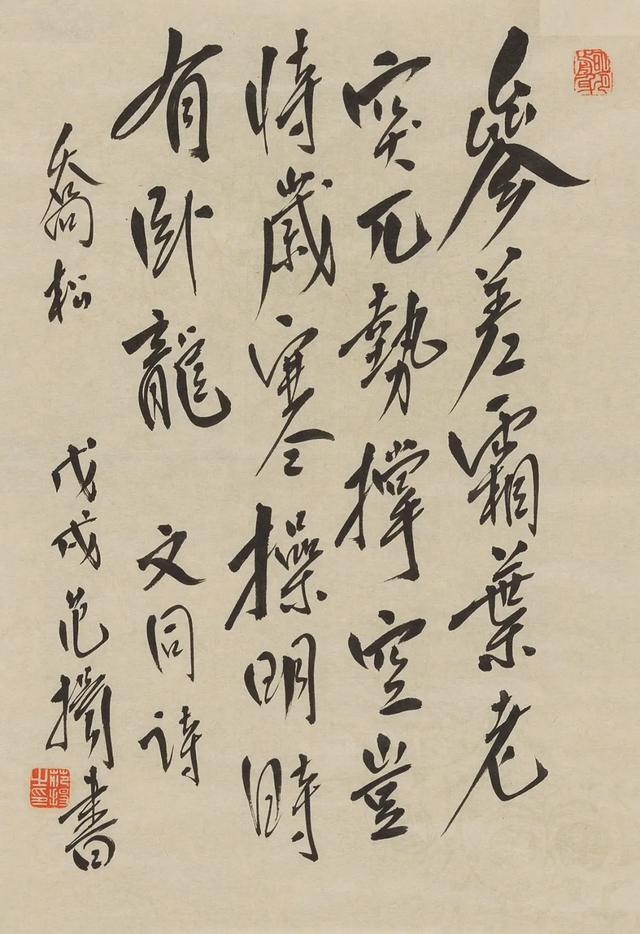 參差霜葉老
突兀勢撑空豈
恃歲寒操明時
有卧龍 文同詩
喬松 戊戌范書